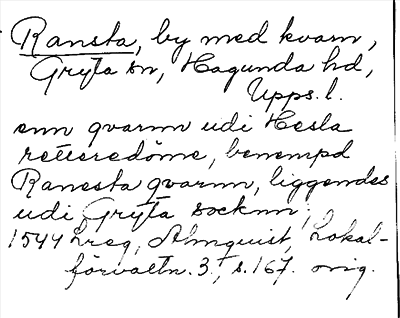 Ransta, by med kvarn,
Gryta sn, Hagunda hd,
Upps. l.
enn qvarnn udi Hesla
retteredöme, benempd
Ranesta qvarnn, liggendes
udi Gryta socknn;
1544 Lreg, Almquist, Lokal-
förvaltn. 3:1, s. 167. orig.